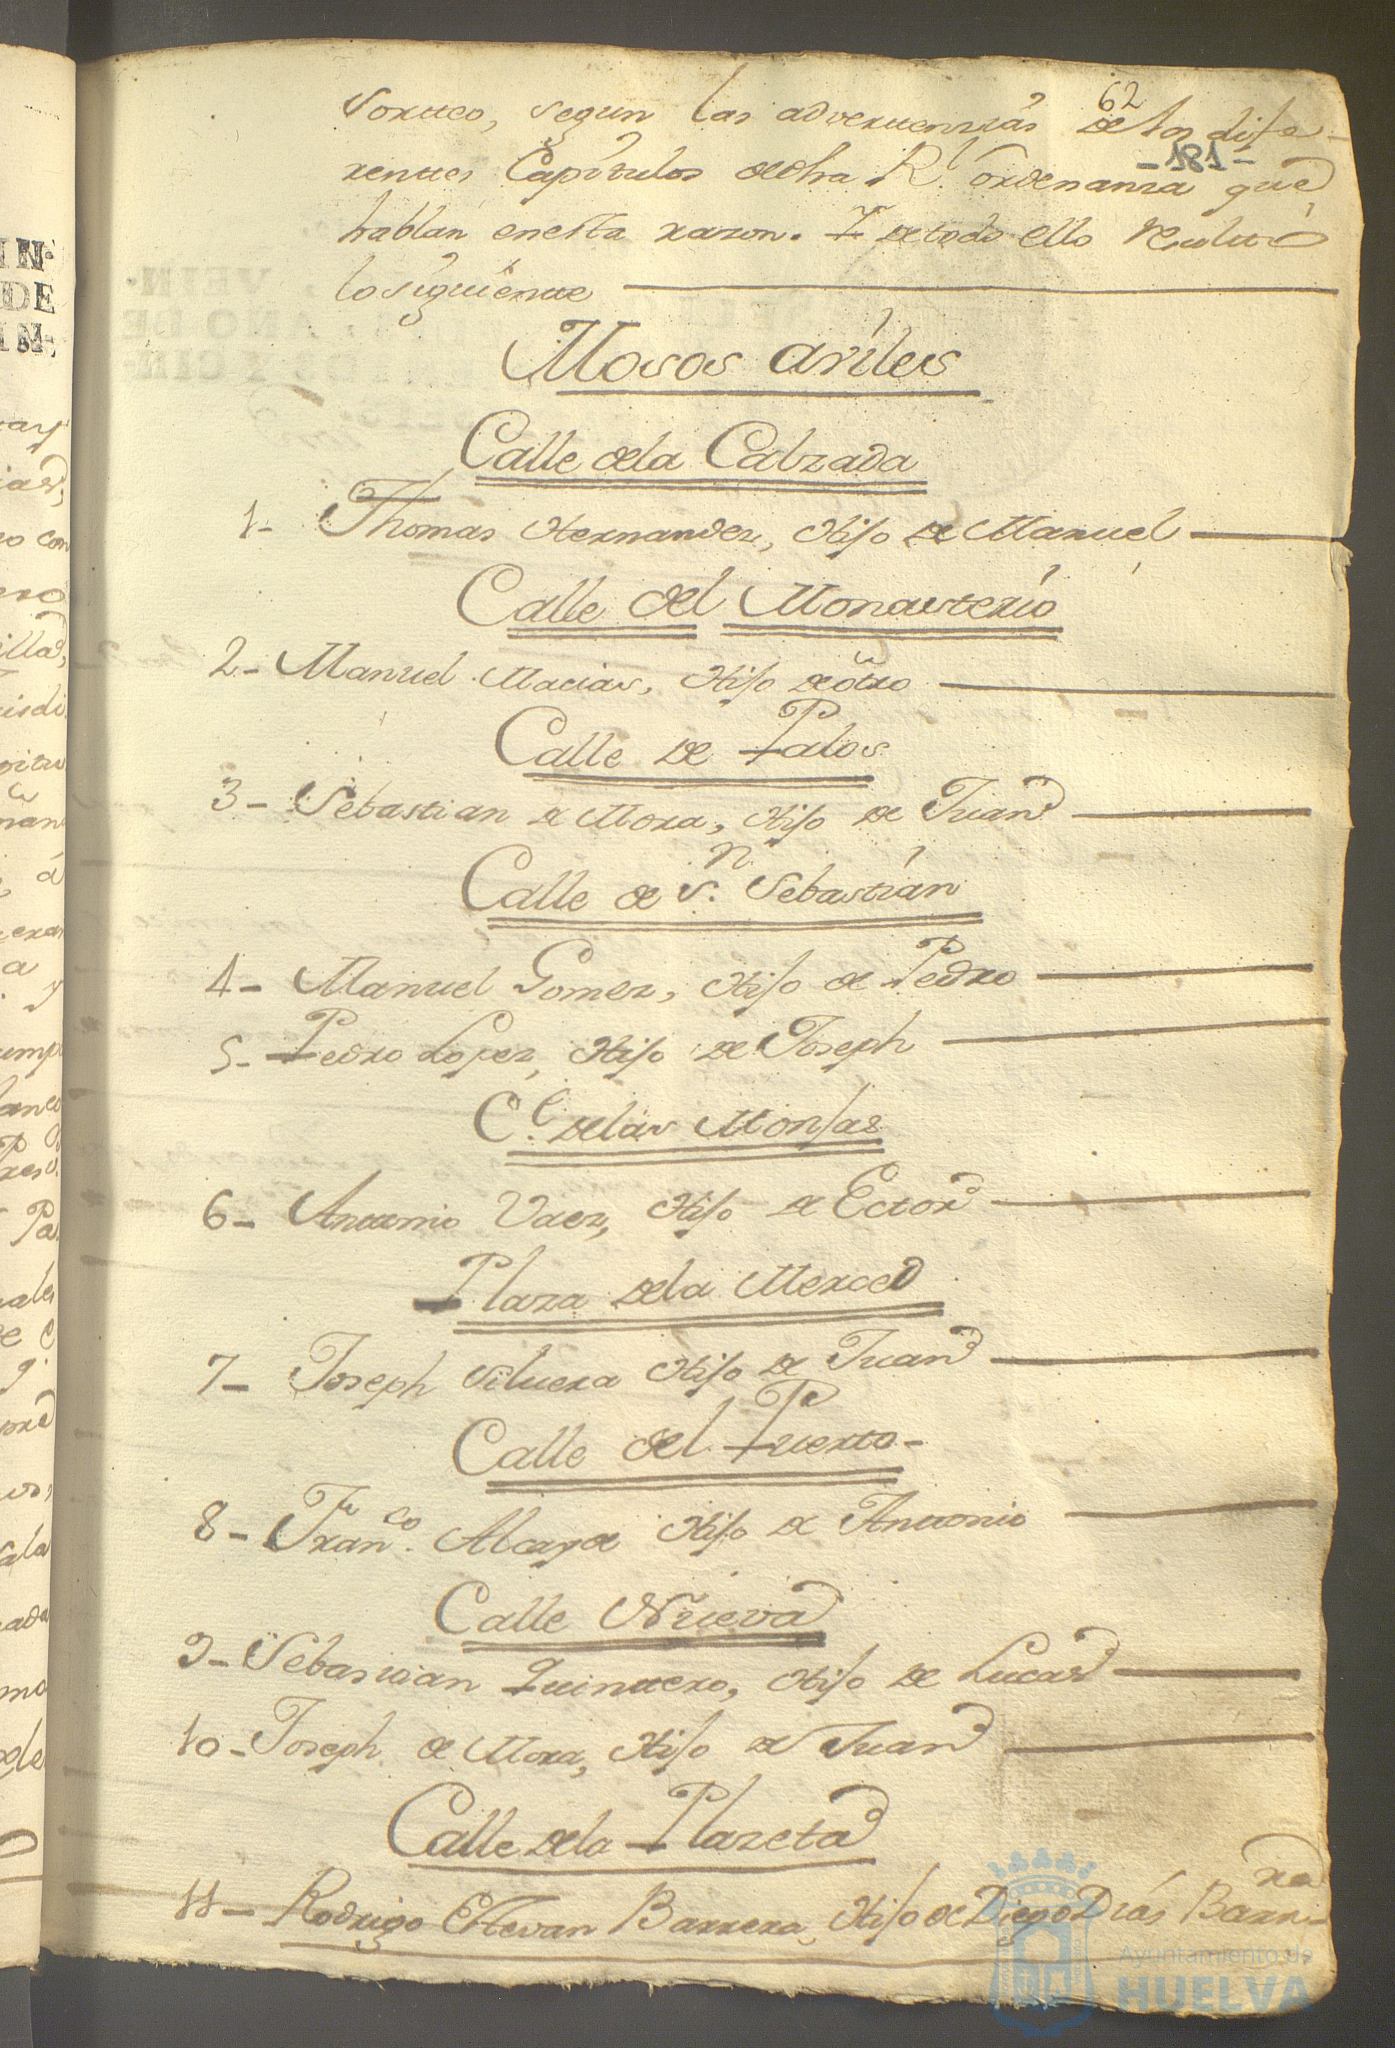 62
Sorteo, segun las advertenzias de los dife-
-181-
rentes Capítulos de dha Rl. ordenanza que
hablan en esta razon. Y de todo ello resultó
lo siguiente
Mosos aviles
Calle dela Calzada
1- Thomas Hernandez, Hijo de Manuel
Calle del Monasterio
2- Manuel Macias, Hijo de otro
Calle de Palos
3- Sebastian de Mora, Hijo de Juan
Calle de Sn. Sebastian
4- Manuel Gomez, Hijo de Pedro
5- Pedro Lopez, Hijo de Joseph
Ce. delas Monjas
6- Antonio Vaez, Hijo de Ector
Plaza dela Merced
7- Joseph Silvera Hijo de Juan
Calle del Puerto-
8- Franco. Alcayde Hijo de Antonio
Calle Nueva
9- Sebastian Quintero, Hijo de Lucas
10- Joseph de Mora, Hijo de Juan
Calle dela Plazeta
11- Rodrigo Estevan Barrera, Hijo de Diego Días Barre-
ra
Ayuntamiento de
HUELVA